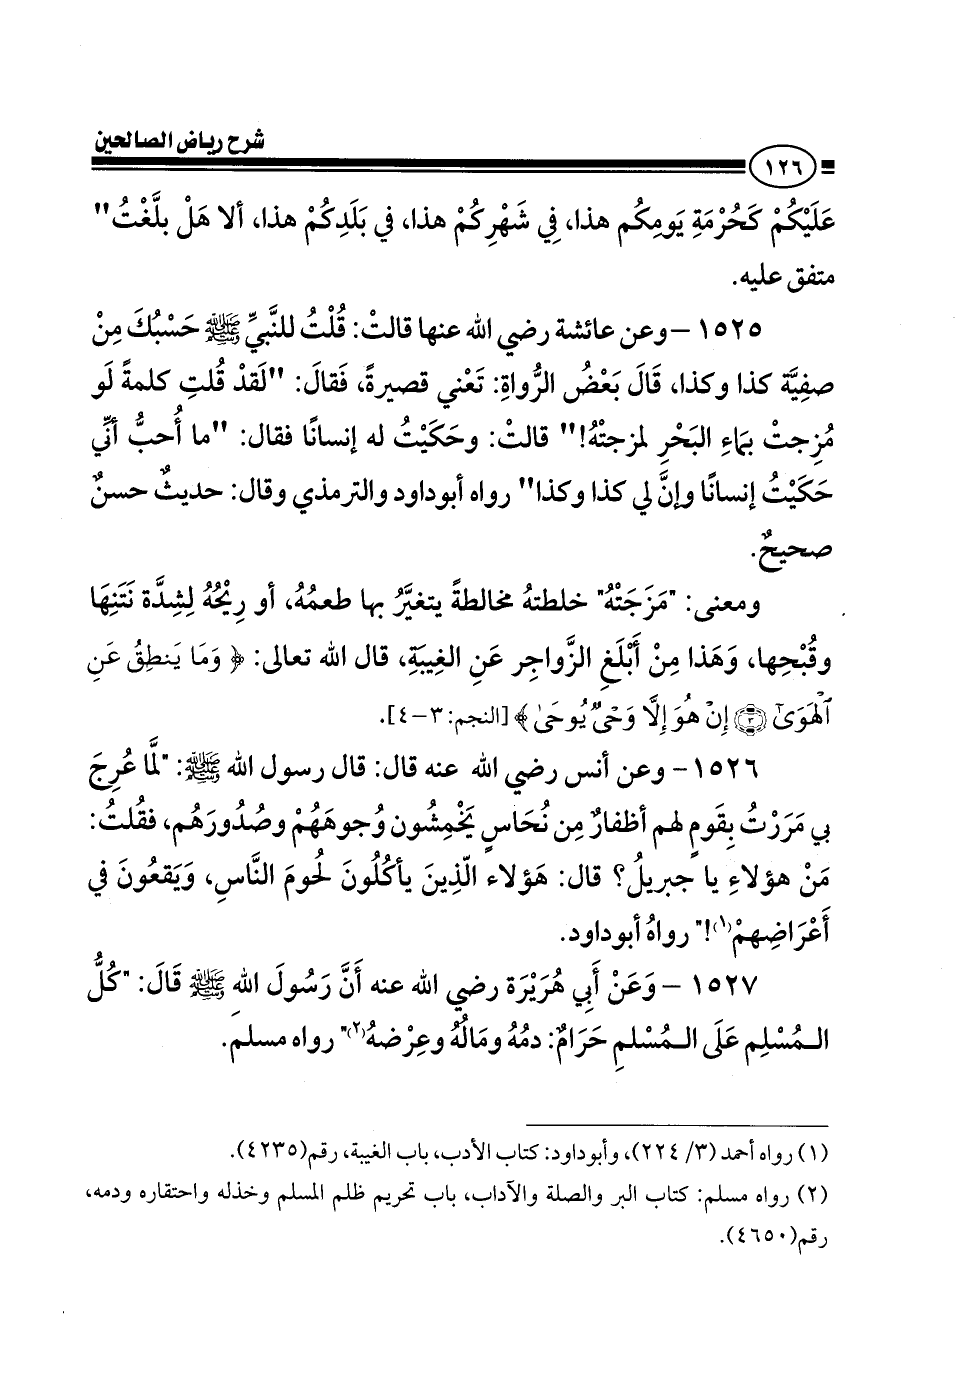 شرح رياض الصالحين
١٢٦
عَلَيْكُمْ كَحُرْمَةِ يَومِكُم هذا، فِي شَهْرِكُمْ هذا، في بَلَدِكُمْ هذا، ألا هَلْ بلَّغْتُ"
متفق عليه.
١٥٢٥ – وعن عائشة رضي الله عنها قالتْ: قُلْتُ للنَّبيِّ ﷺ حَسْبُكَ مِنْ
صفِيَّة كذا وكذا، قَالَ بَعْضُ الرُّواةِ: تَعْني قصيرةً، فَقالَ: "لَقدْ قُلتِ كلمةً لَو
مُزِجتْ بماءِ البَحْرِ لمزجتْهُ!" قالتْ: وحَكَيْتُ له إنسانًا فقال: "ما أُحبُّ أنِّي
حَكَيْتُ إنسانًا وإنَّ لي كذا وكذا" رواه أبوداود والترمذي وقال: حديثٌ حسنٌ
صحيحٌ.
ومعنى: "مَزَجَتْهُ" خلطتهُ مخالطةً يتغيَّرُ بها طعمُهُ، أو رِيْحُهُ لِشِدَّة نَتَنِهَا
وقُبْحِها، وَهَذا مِنْ أَبْلَغِ الزَّواجِر عَنِ الغِيبَةِ، قال الله تعالى: ﴿ وَمَا يَنطِقُ عَنِ
ٱلْهَوَىٰٓ ۝٣ إِنْ هُوَ إِلَّا وَحْىٌ يُوحَىٰ ﴾ [النجم: ٣-٤].
١٥٢٦ – وعن أنس رضي الله عنه قال: قال رسول الله ﷺ: "لَّما عُرِجَ
بي مَرَرْتُ بِقَومٍ لهم أظفارٌ مِن نُحَاسٍ يَخْمِشُون وُجوهَهُمْ وصُدُورَهُم، فقُلتُ:
مَنْ هؤلاءِ يا جبريلُ؟ قال: هَؤلاء الّذِينَ يأكُلُونَ لحُومَ النَّاسِ، وَيَقعُونَ في
أَعْرَاضِهِمْ(١)!" رواهُ أبوداود.
١٥٢٧ – وَعَنْ أَبي هُرَيْرَة رضي الله عنه أنَّ رَسُولَ الله ﷺ قَالَ: "كُلُّ
المُسْلِمِ عَلَى المُسْلمِ حَرَامٌ: دمُهُ ومَالُهُ وعِرْضهُ(٢)" رواه مسلم.
(١) رواه أحمد (٣/ ٢٢٤)، وأبوداود: كتاب الأدب، باب الغيبة، رقم(٤٢٣٥).
(٢) رواه مسلم: كتاب البر والصلة والآداب، باب تحريم ظلم المسلم وخذله واحتقاره ودمه،
رقم(٤٦٥٠).